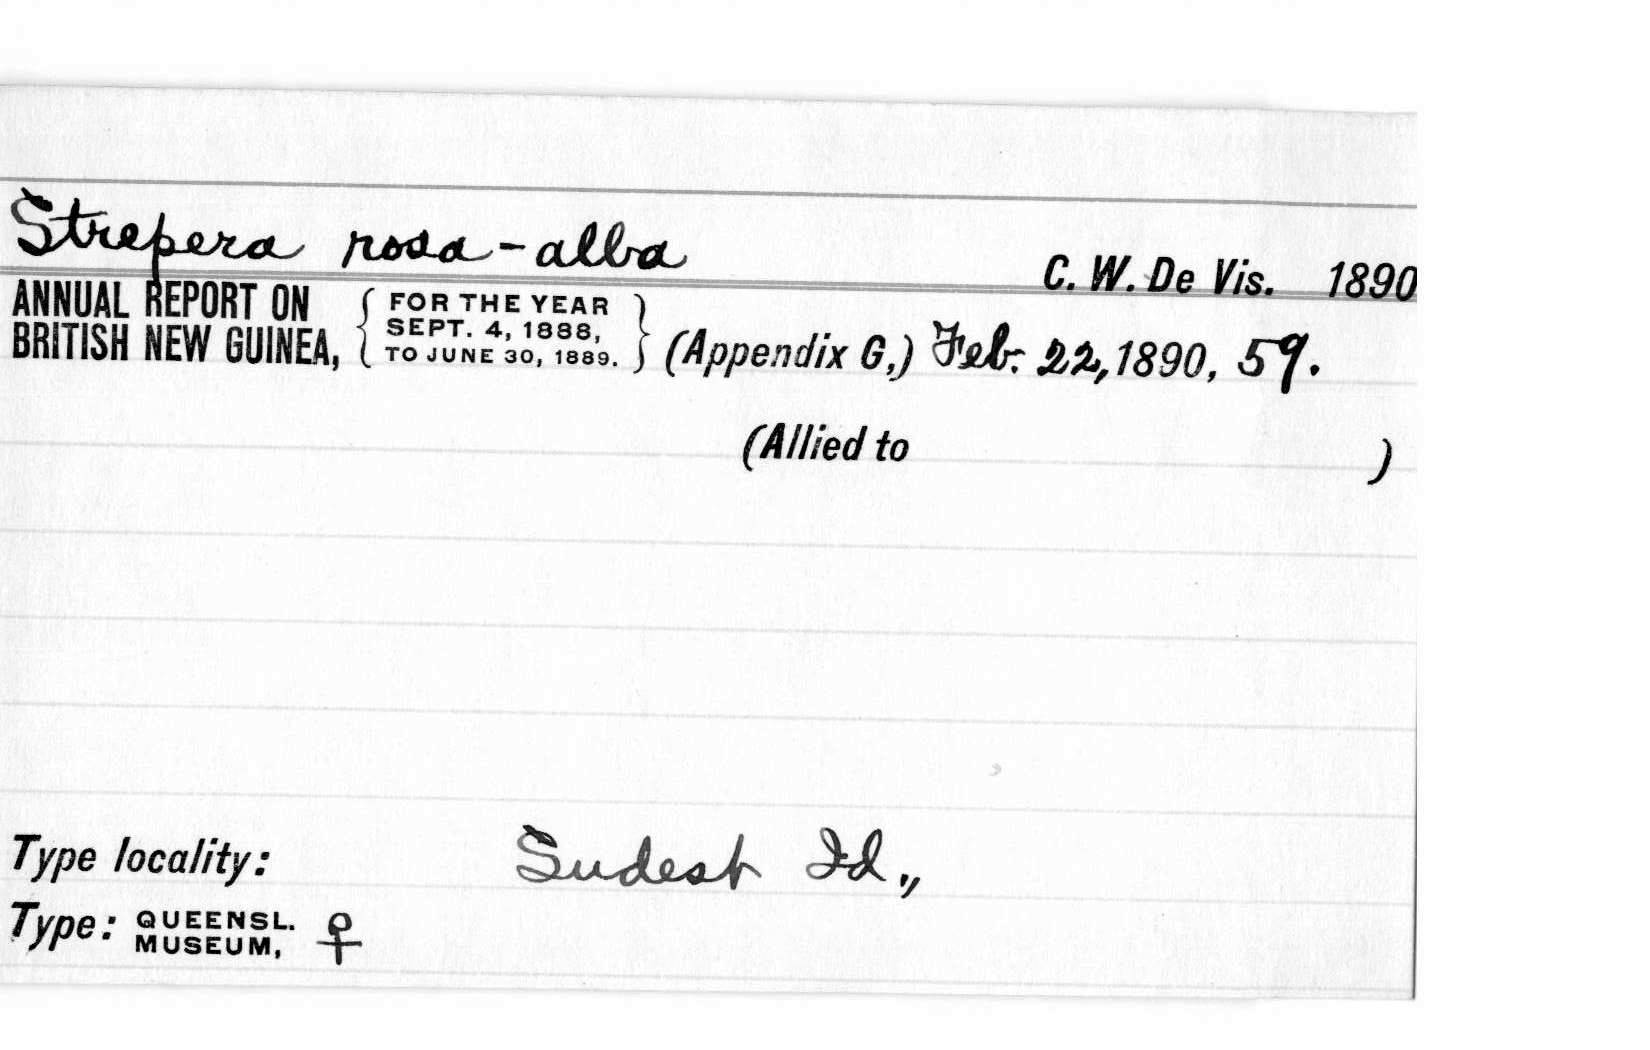 Strepera rosa-alba
C. W. De Vis. 1890
ANNUAL REPORT ON BRITISH NEW GUINEA, { FOR THE YEAR SEPT. 4, 1888, TO JUNE 30, 1889. } (Appendix G,) Feb. 22, 1890, 59.
(Allied to )
Type locality: Sudest Id.,
Type: QUEENSL. MUSEUM, ♀